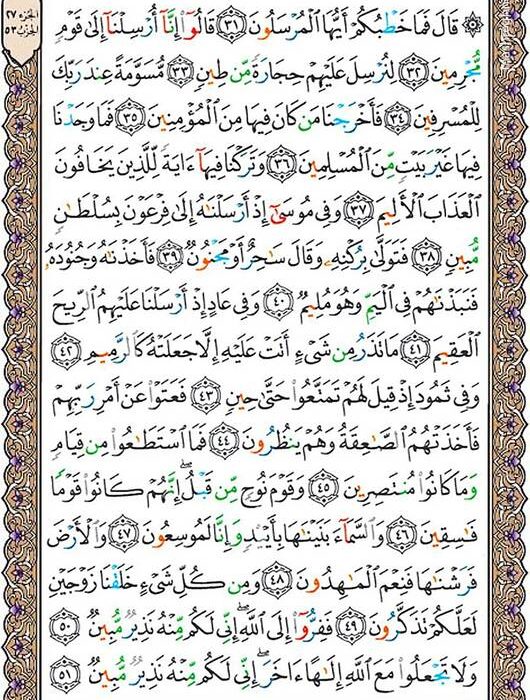 الجزء ٢٧
الحزب ٥٣
۞ قَالَ فَمَا خَطۡبُكُمۡ أَيُّهَا ٱلۡمُرۡسَلُونَ ٣١ قَالُوٓاْ إِنَّآ أُرۡسِلۡنَآ إِلَىٰ قَوۡمٖ
مُّجۡرِمِينَ ٣٢ لِنُرۡسِلَ عَلَيۡهِمۡ حِجَارَةٗ مِّن طِينٖ ٣٣ مُّسَوَّمَةً عِندَ رَبِّكَ
لِلۡمُسۡرِفِينَ ٣٤ فَأَخۡرَجۡنَا مَن كَانَ فِيهَا مِنَ ٱلۡمُؤۡمِنِينَ ٣٥ فَمَا وَجَدۡنَا
فِيهَا غَيۡرَ بَيۡتٖ مِّنَ ٱلۡمُسۡلِمِينَ ٣٦ وَتَرَكۡنَا فِيهَآ ءَايَةٗ لِّلَّذِينَ يَخَافُونَ
ٱلۡعَذَابَ ٱلۡأَلِيمَ ٣٧ وَفِي مُوسَىٰٓ إِذۡ أَرۡسَلۡنَٰهُ إِلَىٰ فِرۡعَوۡنَ بِسُلۡطَٰنٖ
مُّبِينٖ ٣٨ فَتَوَلَّىٰ بِرُكۡنِهِۦ وَقَالَ سَٰحِرٌ أَوۡ مَجۡنُونٞ ٣٩ فَأَخَذۡنَٰهُ وَجُنُودَهُۥ
فَنَبَذۡنَٰهُمۡ فِي ٱلۡيَمِّ وَهُوَ مُلِيمٞ ٤٠ وَفِي عَادٍ إِذۡ أَرۡسَلۡنَا عَلَيۡهِمُ ٱلرِّيحَ
ٱلۡعَقِيمَ ٤١ مَا تَذَرُ مِن شَيۡءٍ أَتَتۡ عَلَيۡهِ إِلَّا جَعَلَتۡهُ كَٱلرَّمِيمِ ٤٢
وَفِي ثَمُودَ إِذۡ قِيلَ لَهُمۡ تَمَتَّعُواْ حَتَّىٰ حِينٖ ٤٣ فَعَتَوۡاْ عَنۡ أَمۡرِ رَبِّهِمۡ
فَأَخَذَتۡهُمُ ٱلصَّٰعِقَةُ وَهُمۡ يَنظُرُونَ ٤٤ فَمَا ٱسۡتَطَٰعُواْ مِن قِيَامٖ
وَمَا كَانُواْ مُنتَصِرِينَ ٤٥ وَقَوۡمَ نُوحٖ مِّن قَبۡلُۖ إِنَّهُمۡ كَانُواْ قَوۡمٗا
فَٰسِقِينَ ٤٦ وَٱلسَّمَآءَ بَنَيۡنَٰهَا بِأَيۡيْدٖ وَإِنَّا لَمُوسِعُونَ ٤٧ وَٱلۡأَرۡضَ
فَرَشۡنَٰهَا فَنِعۡمَ ٱلۡمَٰهِدُونَ ٤٨ وَمِن كُلِّ شَيۡءٍ خَلَقۡنَا زَوۡجَيۡنِ
لَعَلَّكُمۡ تَذَكَّرُونَ ٤٩ فَفِرُّوٓاْ إِلَى ٱللَّهِۖ إِنِّي لَكُم مِّنۡهُ نَذِيرٞ مُّبِينٞ ٥٠
وَلَا تَجۡعَلُواْ مَعَ ٱللَّهِ إِلَٰهًا ءَاخَرَۖ إِنِّي لَكُم مِّنۡهُ نَذِيرٞ مُّبِينٞ ٥١